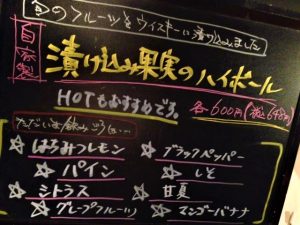 旬のフルーツをウイスキーに漬け込みました
自家製
漬け込み果実のハイボール
HOTもおすすめです。
各600円(税込648円)
ただいま飲みごろは…
☆はちみつレモン
☆ブラックペッパー
☆パイン
☆しそ
☆シトラス
☆甘夏
☆グレープフルーツ
☆マンゴーバナナ